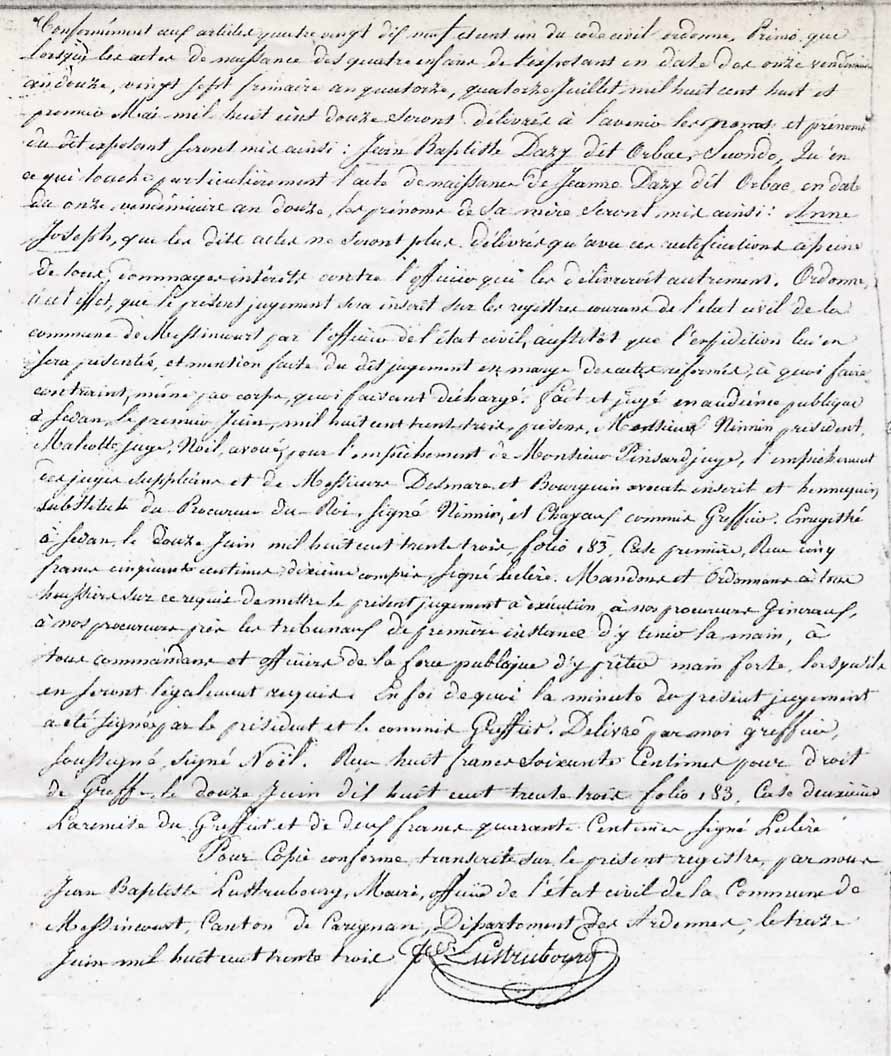 Conformément aux articles quatre vingt dix neuf et cent un du code civil ordonne, Primo que
lorsque les actes de naissance des quatre enfans de l'exposant en date des onze vendémiaire
an douze, vingt sept frimaire an quatorze, quatorze Juillet mil huit cent huit et
premier Mai mil huit cent douze seront délivrés à l'avenir les noms et prénoms
du dit exposant seront mis ainsi : Jean Baptiste Dazy dit Orbac, Secondo, Qu'en
ce qui touche particulièrement l'acte de naissance de Jeanne Dazy dit Orbac en date
du onze vendémiaire an douze, les prénoms de sa mère seront mis ainsi : Anne
Joseph, que les dits actes ne seront plus délivrés qu'avec ces rectifications à peine
de tous dommages intérêts contre l'officier qui les délivreroit autrement. Ordonne,
à cet effet, que le présent jugement sera inscrit sur les registres courans de l'état civil de la
commune de Messincourt par l'officier de l'état civil, aussitôt que l'expédition lui en
sera présentée, et mention faite du dit jugement en marge des actes réformés, à quoi faire
contraint, même par corps, quoi faisant déchargé. Fait et jugé en audience publique
à Sedan, le premier Juin, mil huit cent trente trois, présens, Messieurs Ninnin président,
juge, Noël, avoué, pour l'empêchement de Monsieur Pinsard juge, l'empêchement
des juges suppléans et de Messieurs Desmare et Bourguin avocats inscrit et hennequin
substitut du Procureur du Roi. Signé Ninnin, et Chayaux commis Greffier. Enregistré
à Sedan, le douze Juin mil huit cent trente trois, folio 183, Case première, Reçu cinq
francs cinquante centimes dixième compris, signé Leclère. Mandons et Ordonnons à tous
huissiers sur ce requis de mettre le présent jugement à exécution, à nos procureurs Généraux,
à nos procureurs près les tribunaux de première instance d'y tenir la main, à
tous commandans et officiers de la force publique d'y prêter main forte, lorsqu'ils
en seront légalement requis. En foi de quoi la minute du présent jugement
a été signée par le président et le commis Greffier. Délivré par moi greffier,
soussigné, signé Noël. Reçu huit francs soixante Centimes pour droit
de Greffe, le douze Juin dix huit cent trente trois folio 183, Case deuxième
La remise du Greffier et de deux francs quarante Centimes signé Leclère
Pour Copie conforme transcrite sur le présent registre, par nous
Jean Baptiste Lustrubourg, Maire, officier de l'état civil de la Commune de
Messincourt, Canton de Carignan, Département des Ardennes, le treize
Juin mil huit cent trente trois. Lustrubourg